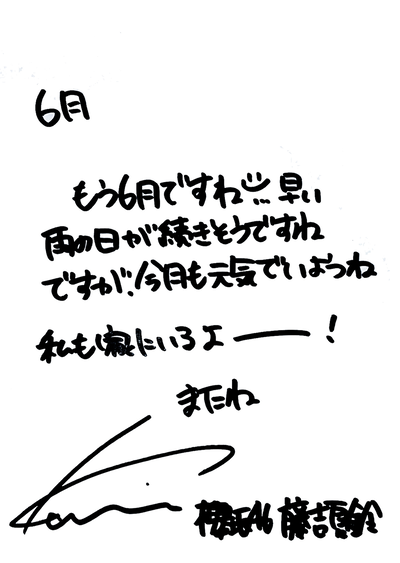 6月
もう6月ですね☺… 早い
雨の日が続きそうですね
ですが!今月も元気でいようね
私も家にいるよ――!
またね
櫻坂46 藤吉夏鈴